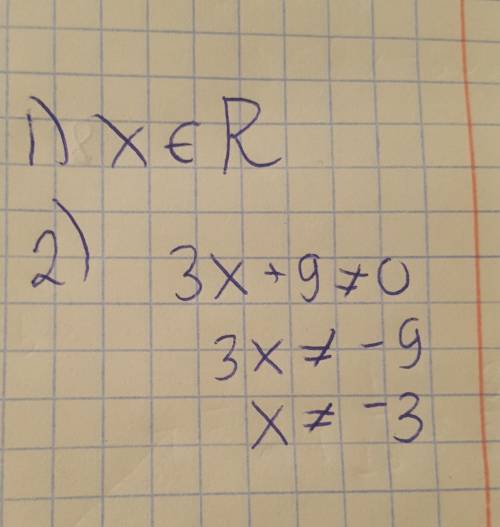 1) x ∈ R
2) 3x + 9 ≠ 0
3x ≠ -9
x ≠ -3